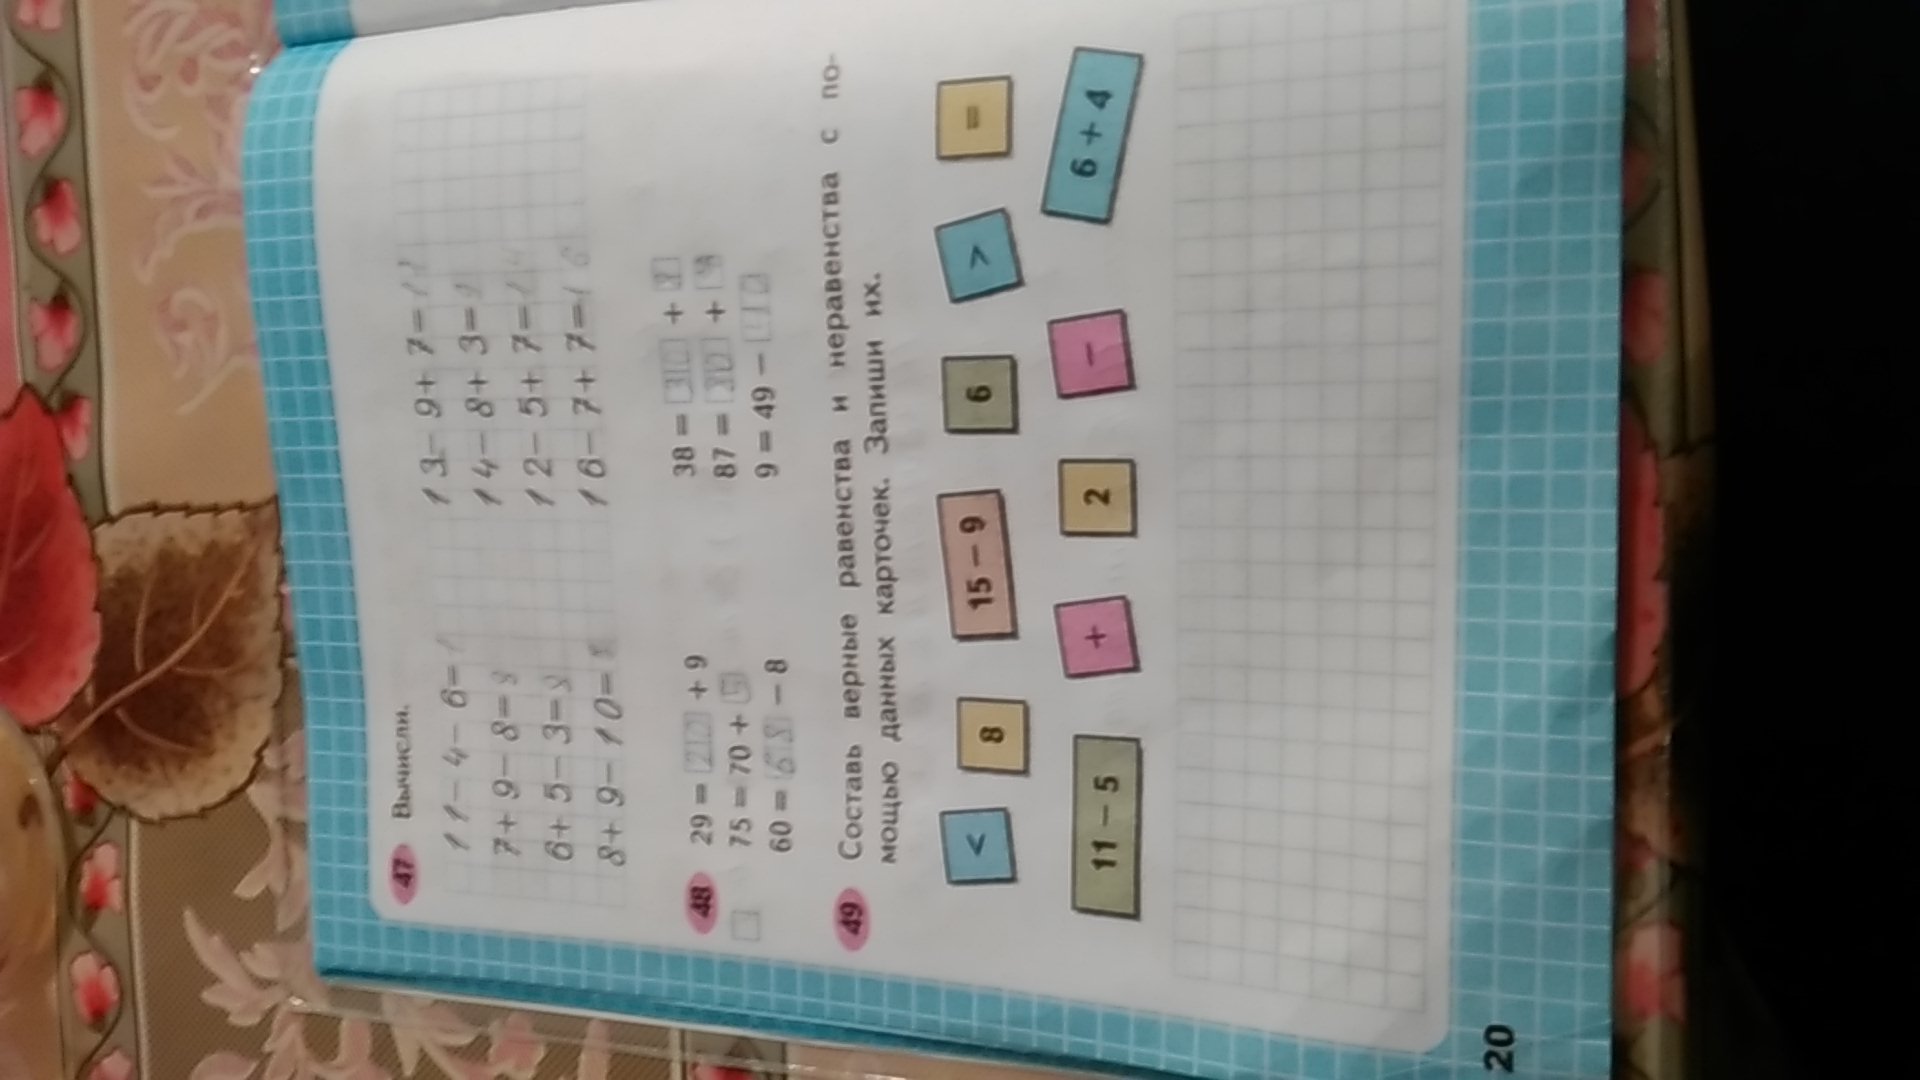 47 Вычисли.
11-4-6=1 13-9+7=11
7+9-8=8 14-8+3=9
6+5-3=8 12-5+7=14
8+9-10= 16-7+7=16
48 29 = 20 + 9 38 = 30 + 8
75 = 70 + 5 87 = 30 +
60 = 68 - 8 9 = 49 - 40
49 Составь верные равенства и неравенства с по-
мощью данных карточек. Запиши их.
< 8 15 - 9 6 > =
11 - 5 + 2 - 6 + 4
20